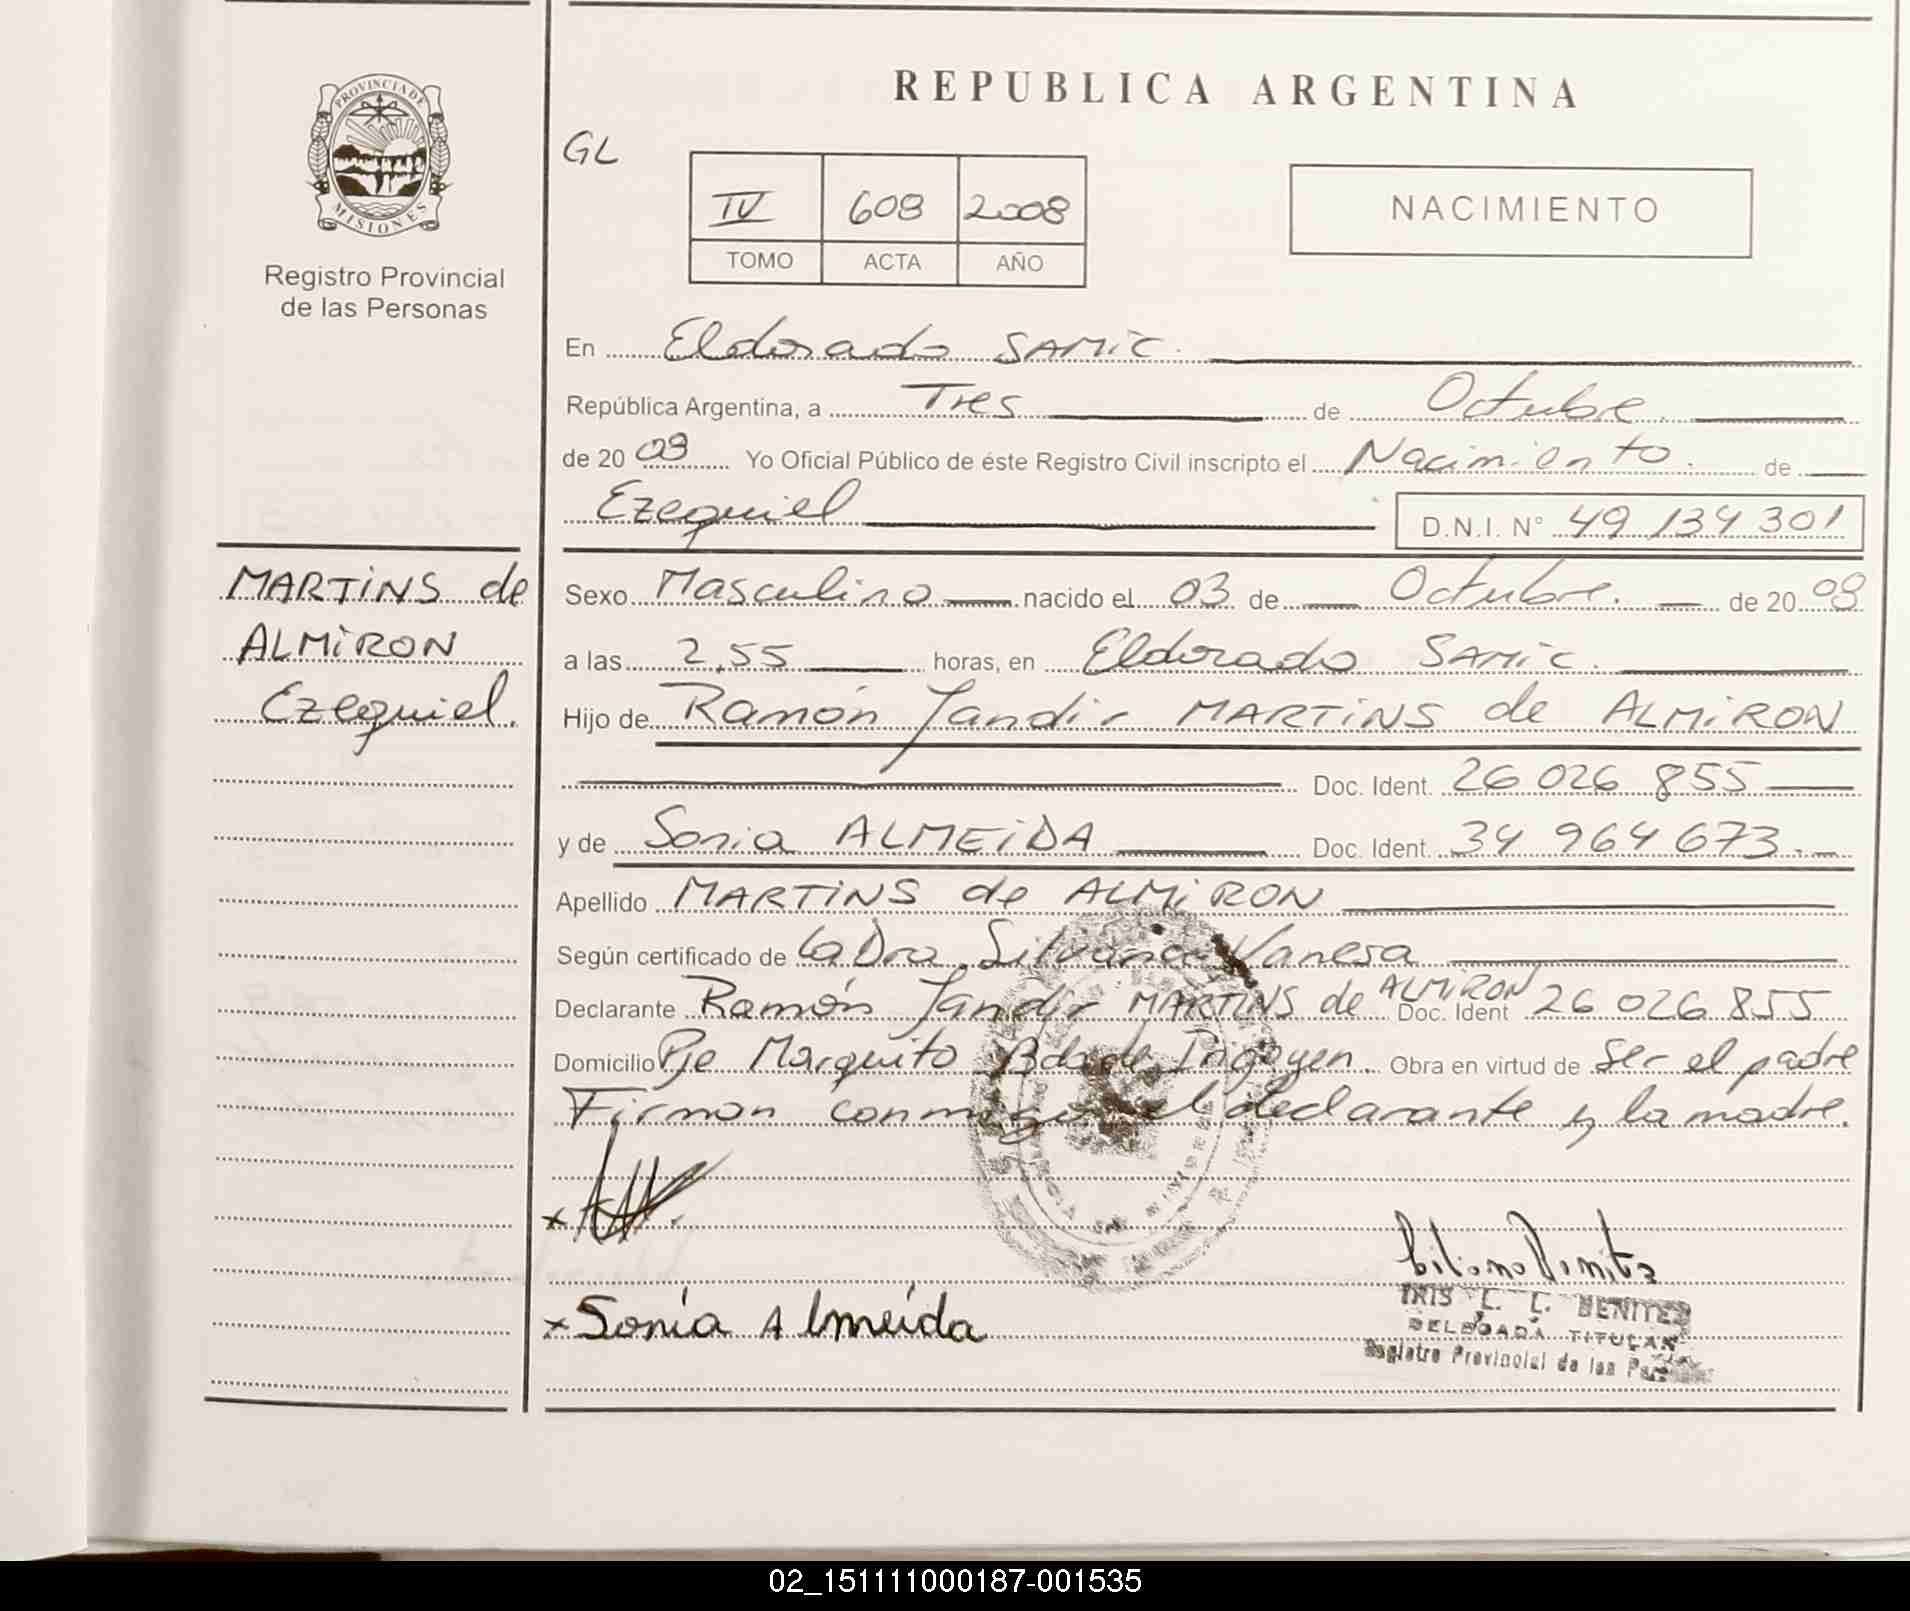 REPUBLICA ARGENTINA
PROVINCIA DE
MISIONES
Registro Provincial
de las Personas
GL
IV 608 2008
TOMO ACTA AÑO
NACIMIENTO
En Eldorado SAMIC.
República Argentina, a Tres de Octubre.
de 20 08 Yo Oficial Público de éste Registro Civil inscripto el Nacimiento. de
Ezequiel D.N.I. N° 49 134 301
MARTINS de
ALMIRON
Ezequiel.
Sexo Masculino nacido el 03 de Octubre. de 20 08
a las 2,55 horas, en Eldorado SAMIC.
Hijo de Ramón Jandir MARTINS de ALMIRON
Doc. Ident. 26 026 855
y de Sonia ALMEIDA Doc. Ident. 34 964 673.
Apellido MARTINS de ALMIRON
Según certificado de la Dra. Silvana Vanesa
Declarante Ramón Jandir MARTINS de ALMIRON Doc. Ident 26 026 855
Domicilio Pje Marquito Irigoyen. Obra en virtud de ser el padre
Firman conmigo el declarante y la madre.
x
x Sonia Almeida
IRIS L. C. BENITEZ
DELEGADA TITULAR
Registro Provincial de las Per
02_151111000187-001535